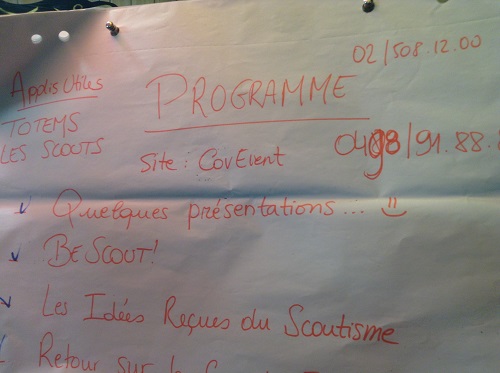 02/508.12.00
Applis Utiles
PROGRAMME
TOTEMS
LES SCOUTS
Site : CovEvent
0498/91.88.
Quelques présentations... :)
BE SCOUT!
Les Idées Reçues du Scoutisme
Retour sur